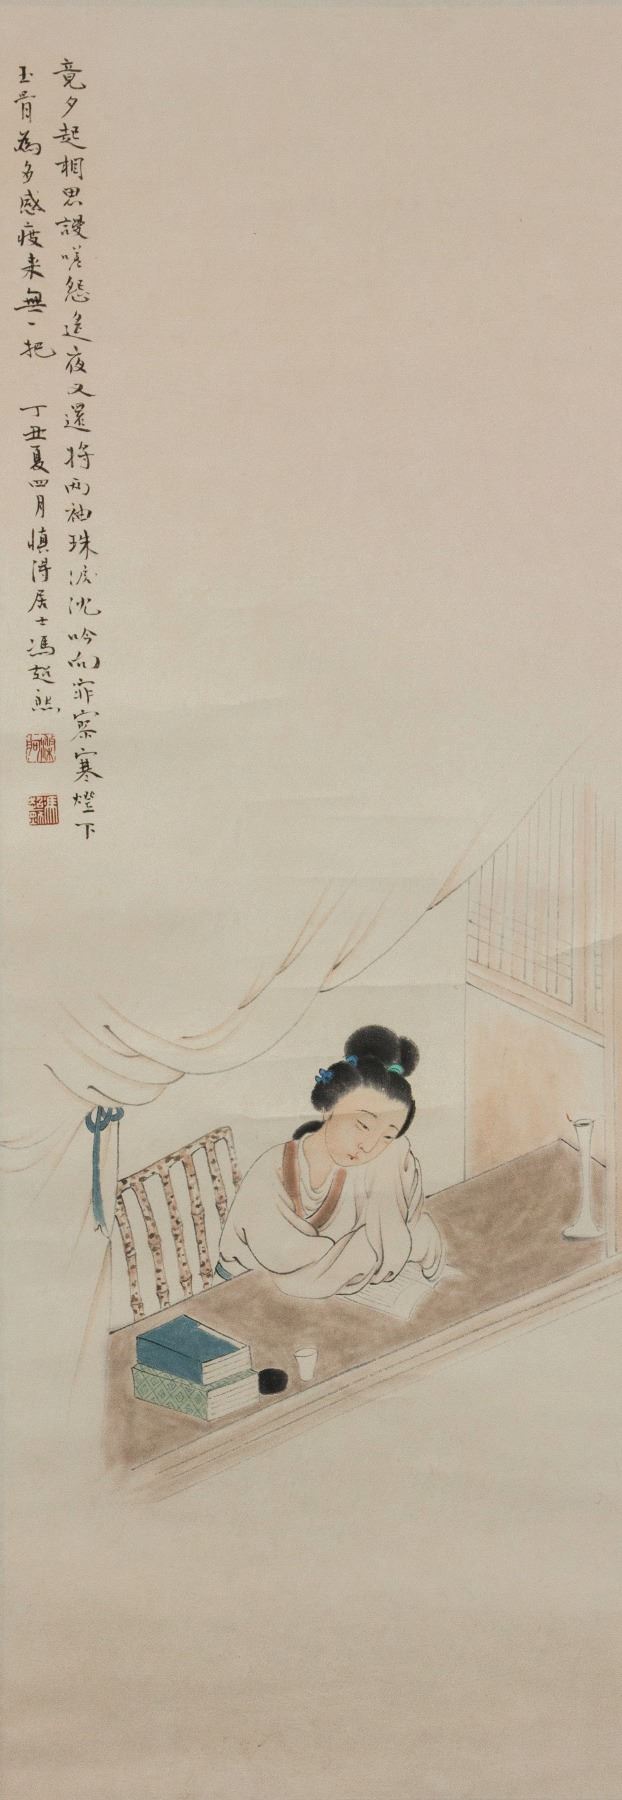 竟夕起相思謾嗟怨遙夜又還將兩袖珠淚沈吟向寂寥寒燈下
玉骨為多感瘦来無一把　丁丑夏四月慎得居士馮超然
馮超然